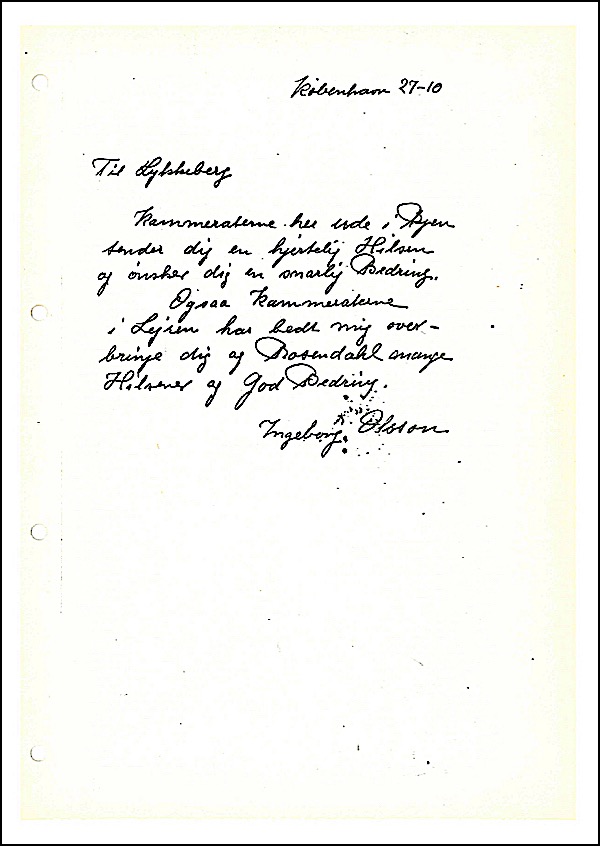 København 27-10
Til Lykkeberg
Kammeraterne her ude i Byen
sender dig en hjertelig Hilsen
og ønsker dig en snarlig Bedring.
Ogsaa Kammeraterne
i Lejren har bedt mig over-
bringe dig og Rosendahl mange
Hilsener og God Bedring.
Ingeborg Olsson